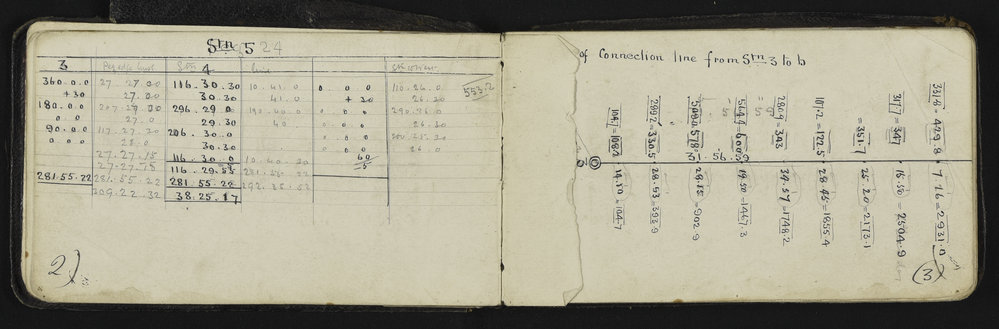 Stn 5 24
3 Stn 4
360.0.0 27.27.00 116.30.30 10.41.0 0.0.0 110.26.0
+30 27.00 30.30 41.0 +30 26.30
180.0.0 207.27.00 296.29.0 190.40.0 0.0.0 290.26.0
0.0 27.0 29.30 40 0.0.0 26.30
90.0.0 117.27.30 206.30.0 0.0.0
0.0.0 28.0 30.30 0.0.0 26.0
27.27.15 116.30.0 10.40.30 60
27.27.75 116.29.55 281.55.22 15
281.55.22 281.55.22 281.55.22 292.35.52
309.22.32 38.25.17
553.2
2)
of Connection line from Stn 3 to b
331.8 429.8
317 = 347
= 351.7
107.2 = 122.5
280.9 = 343
544.4 = 600.5
509.0 578
299.2 = 330.5
104.7 = 108.2
31.56.59
7.16 = 2931.0
16.50 = 2504.9
22.20 = 2173.1
28.45 = 1855.4
34.57 = 1748.2
49.50 = 1447.3
28.15 = 902.9
28.53 = 393.9
14.50 = 104.7
(3)